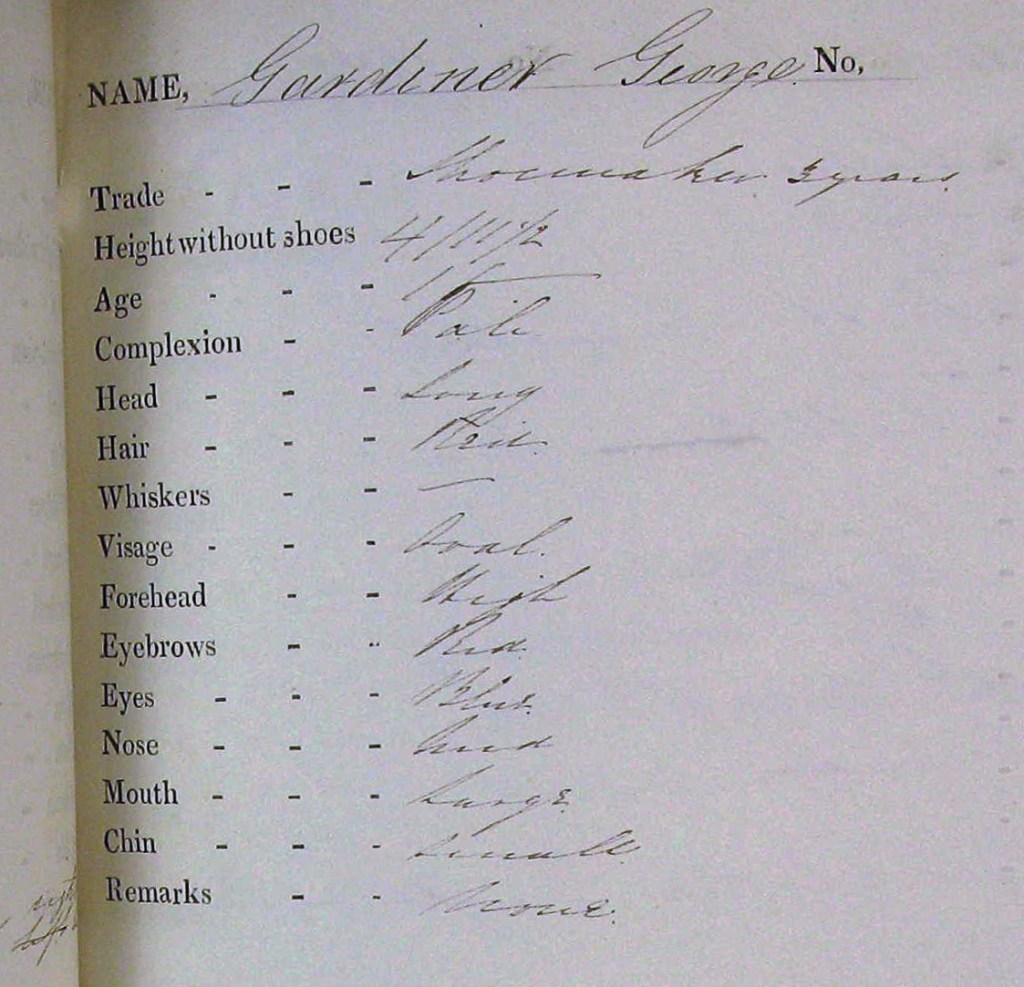 NAME, Gardiner George No,
Trade - - - Shoemaker 3 years
Height without shoes 4/11 1/2
Age - - - 15
Complexion - - Pale
Head - - - Long
Hair - - - Red
Whiskers - - —
Visage - - - Oval.
Forehead - - High
Eyebrows - - Red
Eyes - - - Blue.
Nose - - - Med
Mouth - - - Large
Chin - - - Small
Remarks - - None.